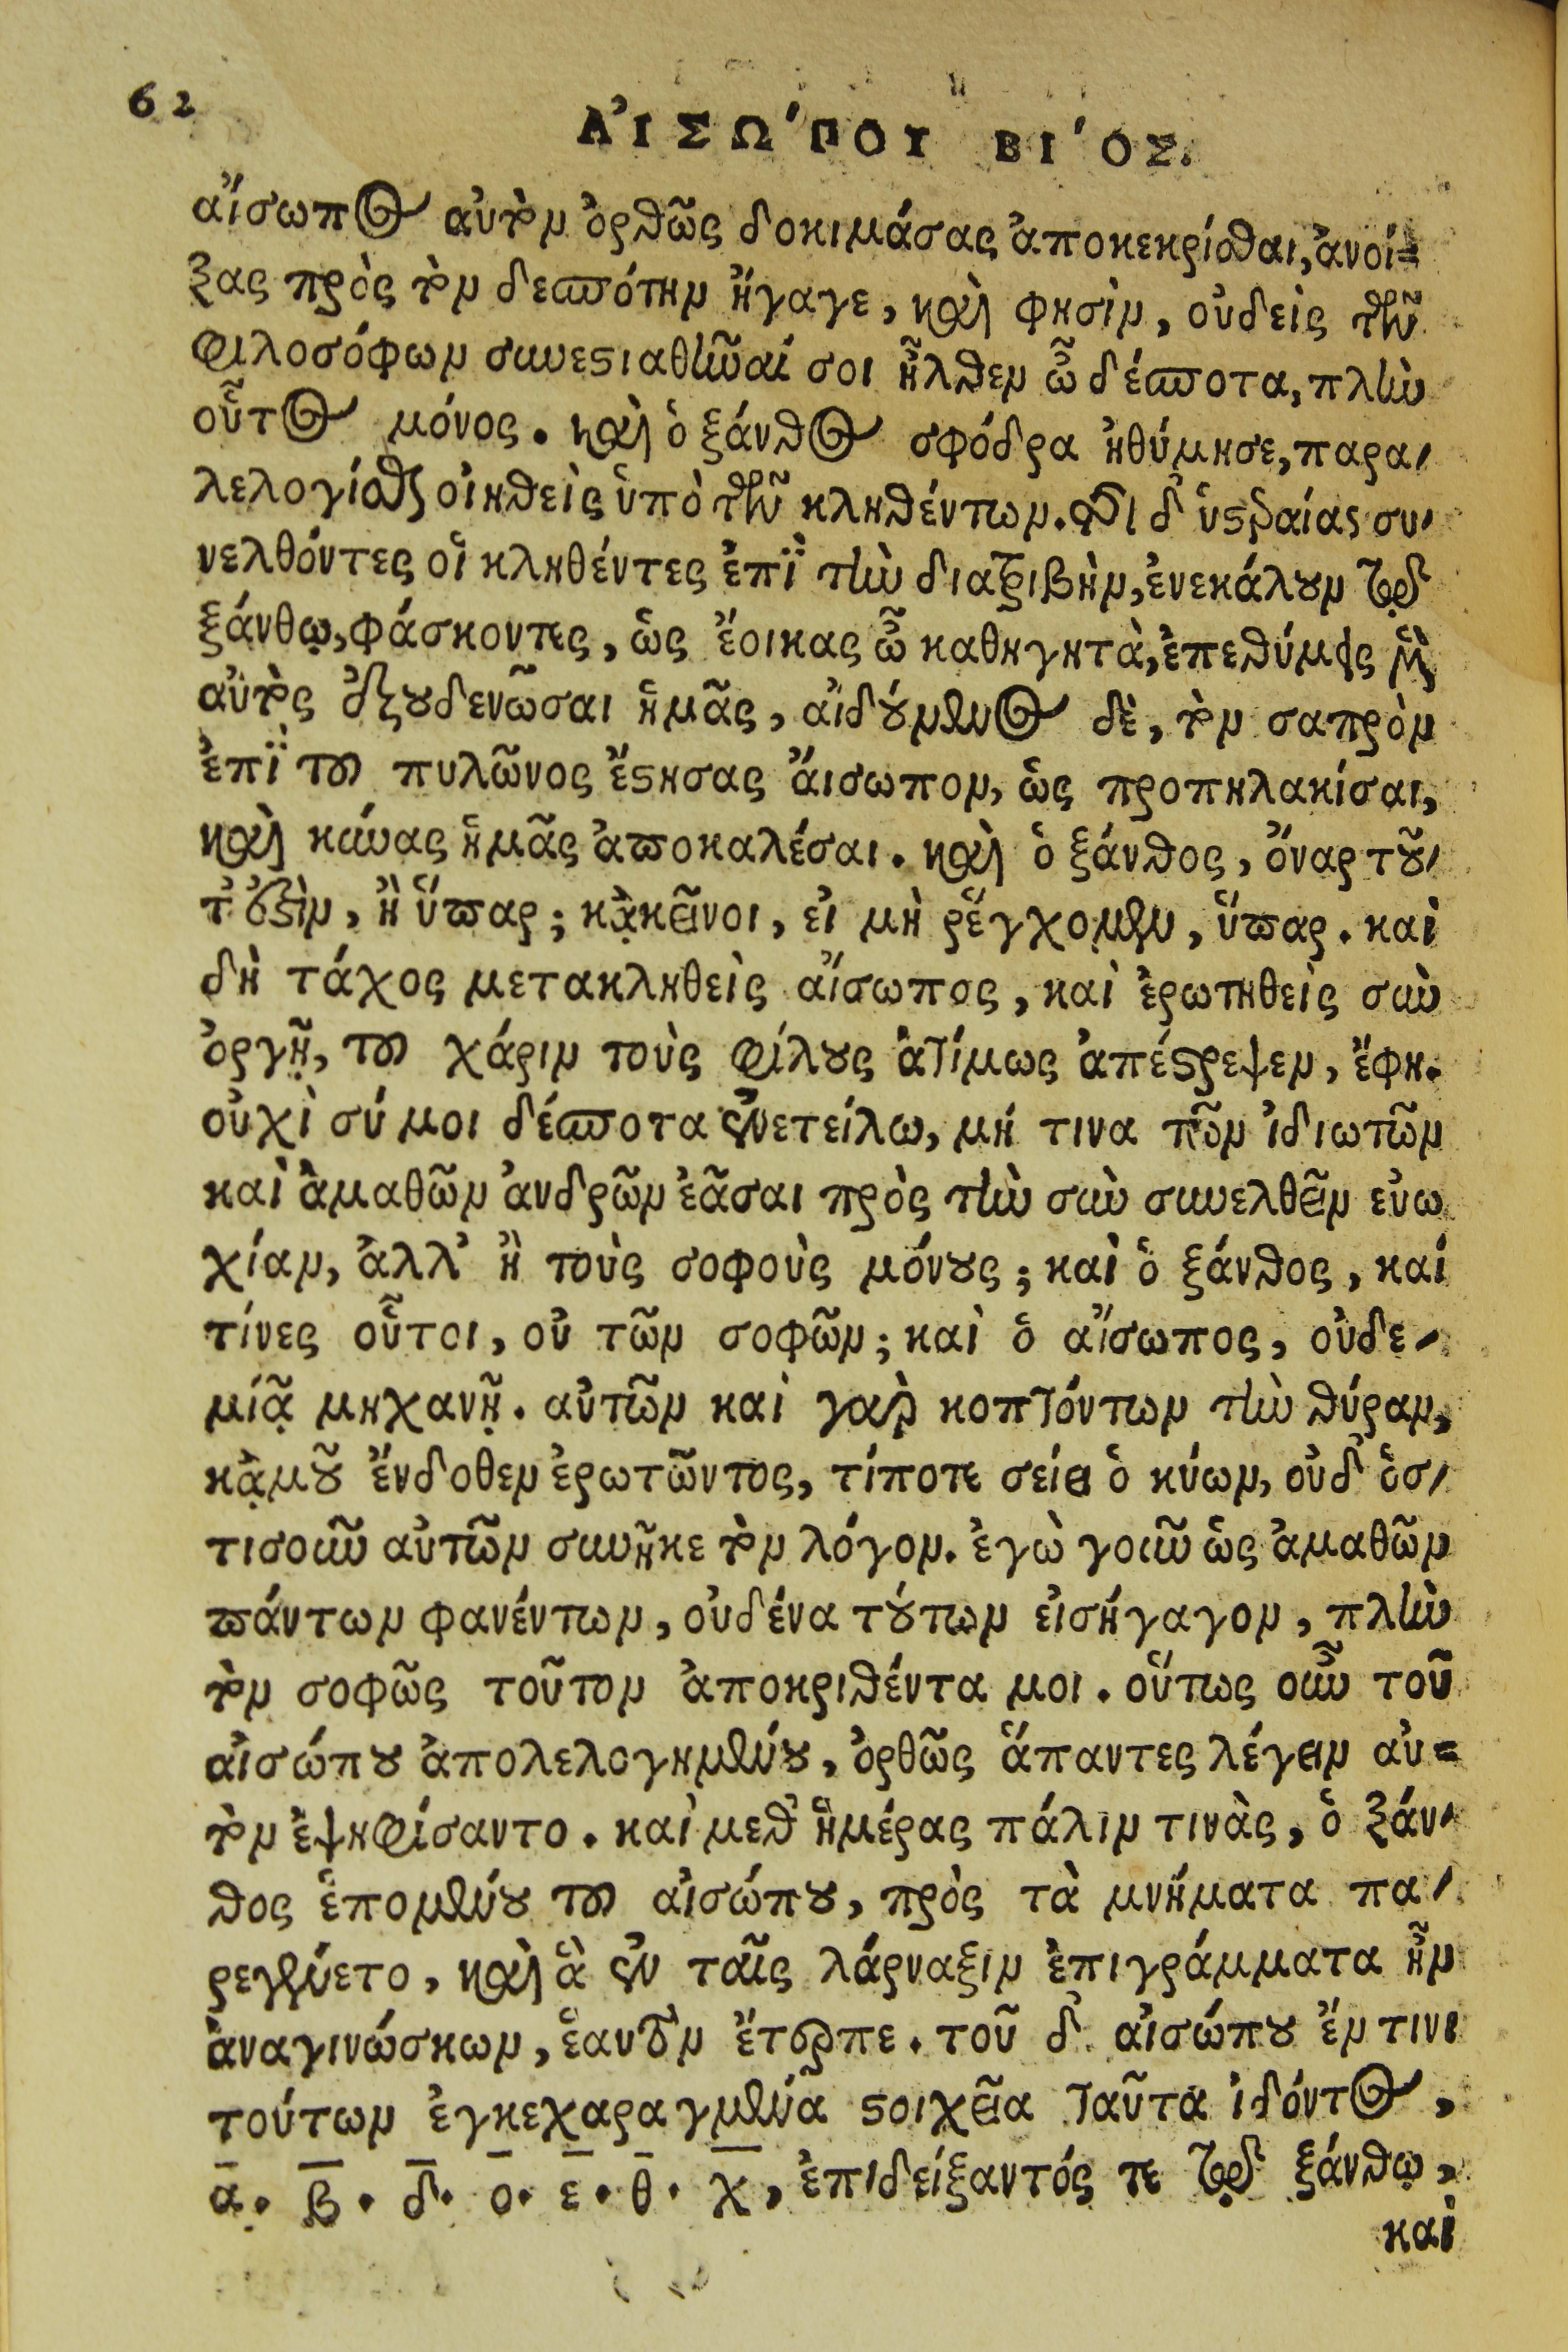 62
ΑἸΣΩ´ΠΟΥ ΒΙ´ΟΣ.
αἴσωπος αὐτὸν ὀρθῶς δοκιμάσας ἀποκεκρίσθαι, ἀνοί=
ξας πρὸς τὸν δεσπότην ἤγαγε, καὶ φησὶν, οὐδεὶς τῶν
φιλοσόφων συνεστιαθῆναί σοι ἦλθεν ὦ δέσποτα, πλὴν
οὗτος μόνος. καὶ ὁ ξάνθος σφόδρα ἠθύμησε, παρα-
λελογίσθαι οἰηθεὶς ὑπὸ τῶν κληθέντων. τῇ δ' ὑστεραίας συ-
νελθόντες οἱ κληθέντες ἐπὶ τὴν διατριβὴν, ἐνεκάλουν τῷ
ξάνθῳ, φάσκοντες, ὡς ἔοικας ὦ καθηγητὰ, ἐπεθύμεις μὲν
αὐτὸς ἐξουδενῶσαι ἡμᾶς, αἰδούμενος δὲ, τὸν σαπρὸν
ἐπὶ τοῦ πυλῶνος ἔστησας ἄισωπον, ὡς προπηλακίσαι,
καὶ κύνας ἡμᾶς ἀποκαλέσαι. καὶ ὁ ξάνθος, ὄναρ τοῦ-
τ' ἐστὶν, ἢ ὕπαρ; κᾀκεῖνοι, εἰ μὴ ῥέγχομεν, ὕπαρ. καὶ
δὴ τάχος μετακληθεὶς αἴσωπος, καὶ ἐρωτηθεὶς σὺν
ὀργῇ, τοῦ χάριν τοὺς φίλους ἀτίμως ἀπέστρεψεν, ἔφη.
οὐχὶ σύ μοι δέσποτα ἐνετείλω, μή τινα τῶν ἰδιωτῶν
καὶ ἀμαθῶν ἀνδρῶν ἐᾶσαι πρὸς τὴν σὴν συνελθεῖν εὐω
χίαν, ἀλλ' ἢ τοὺς σοφοὺς μόνους; καὶ ὁ ξάνθος, καί
τίνες οὗτοι, οὐ τῶν σοφῶν; καὶ ὁ αἴσωπος, οὐδε-
μίᾳ μηχανῇ. αὐτῶν καὶ γὰρ κοπτόντων τὴν θύραν,
κᾀμοῦ ἔνδοθεν ἐρωτῶντος, τίποτε σείει ὁ κύων, οὐδ' ὁσ-
τισοῦν αὐτῶν συνῆκε τὸν λόγον. ἐγὼ γοῦν ὡς ἀμαθῶν
πάντων φανέντων, οὐδένα τούτων εἰσήγαγον, πλὴν
τὸν σοφῶς τοῦτον ἀποκριθέντα μοι. οὕτως οὖν τοῦ
αἰσώπου ἀπολελογημένου, ὀρθῶς ἅπαντες λέγειν αὐ=
τὸν ἐψηφίσαντο. καὶ μεθ' ἡμέρας πάλιν τινὰς, ὁ ξάν-
θος ἑπομένου τοῦ αἰσώπου, πρὸς τὰ μνήματα πα-
ρεγένετο, καὶ ἃ ἐν ταῖς λάρναξιν ἐπιγράμματα ἦν
ἀναγινώσκων, ἑαυτὸν ἔτερπε. τοῦ δ' αἰσώπου ἔν τινι
τούτων ἐγκεχαραγμένα στοιχεῖα ταῦτα ἰδόντος,
α̅. β̅. δ̅. ο̅. ε̅. θ̅. χ̅, ἐπιδείξαντός τε τῷ ξάνθῳ,
καὶ